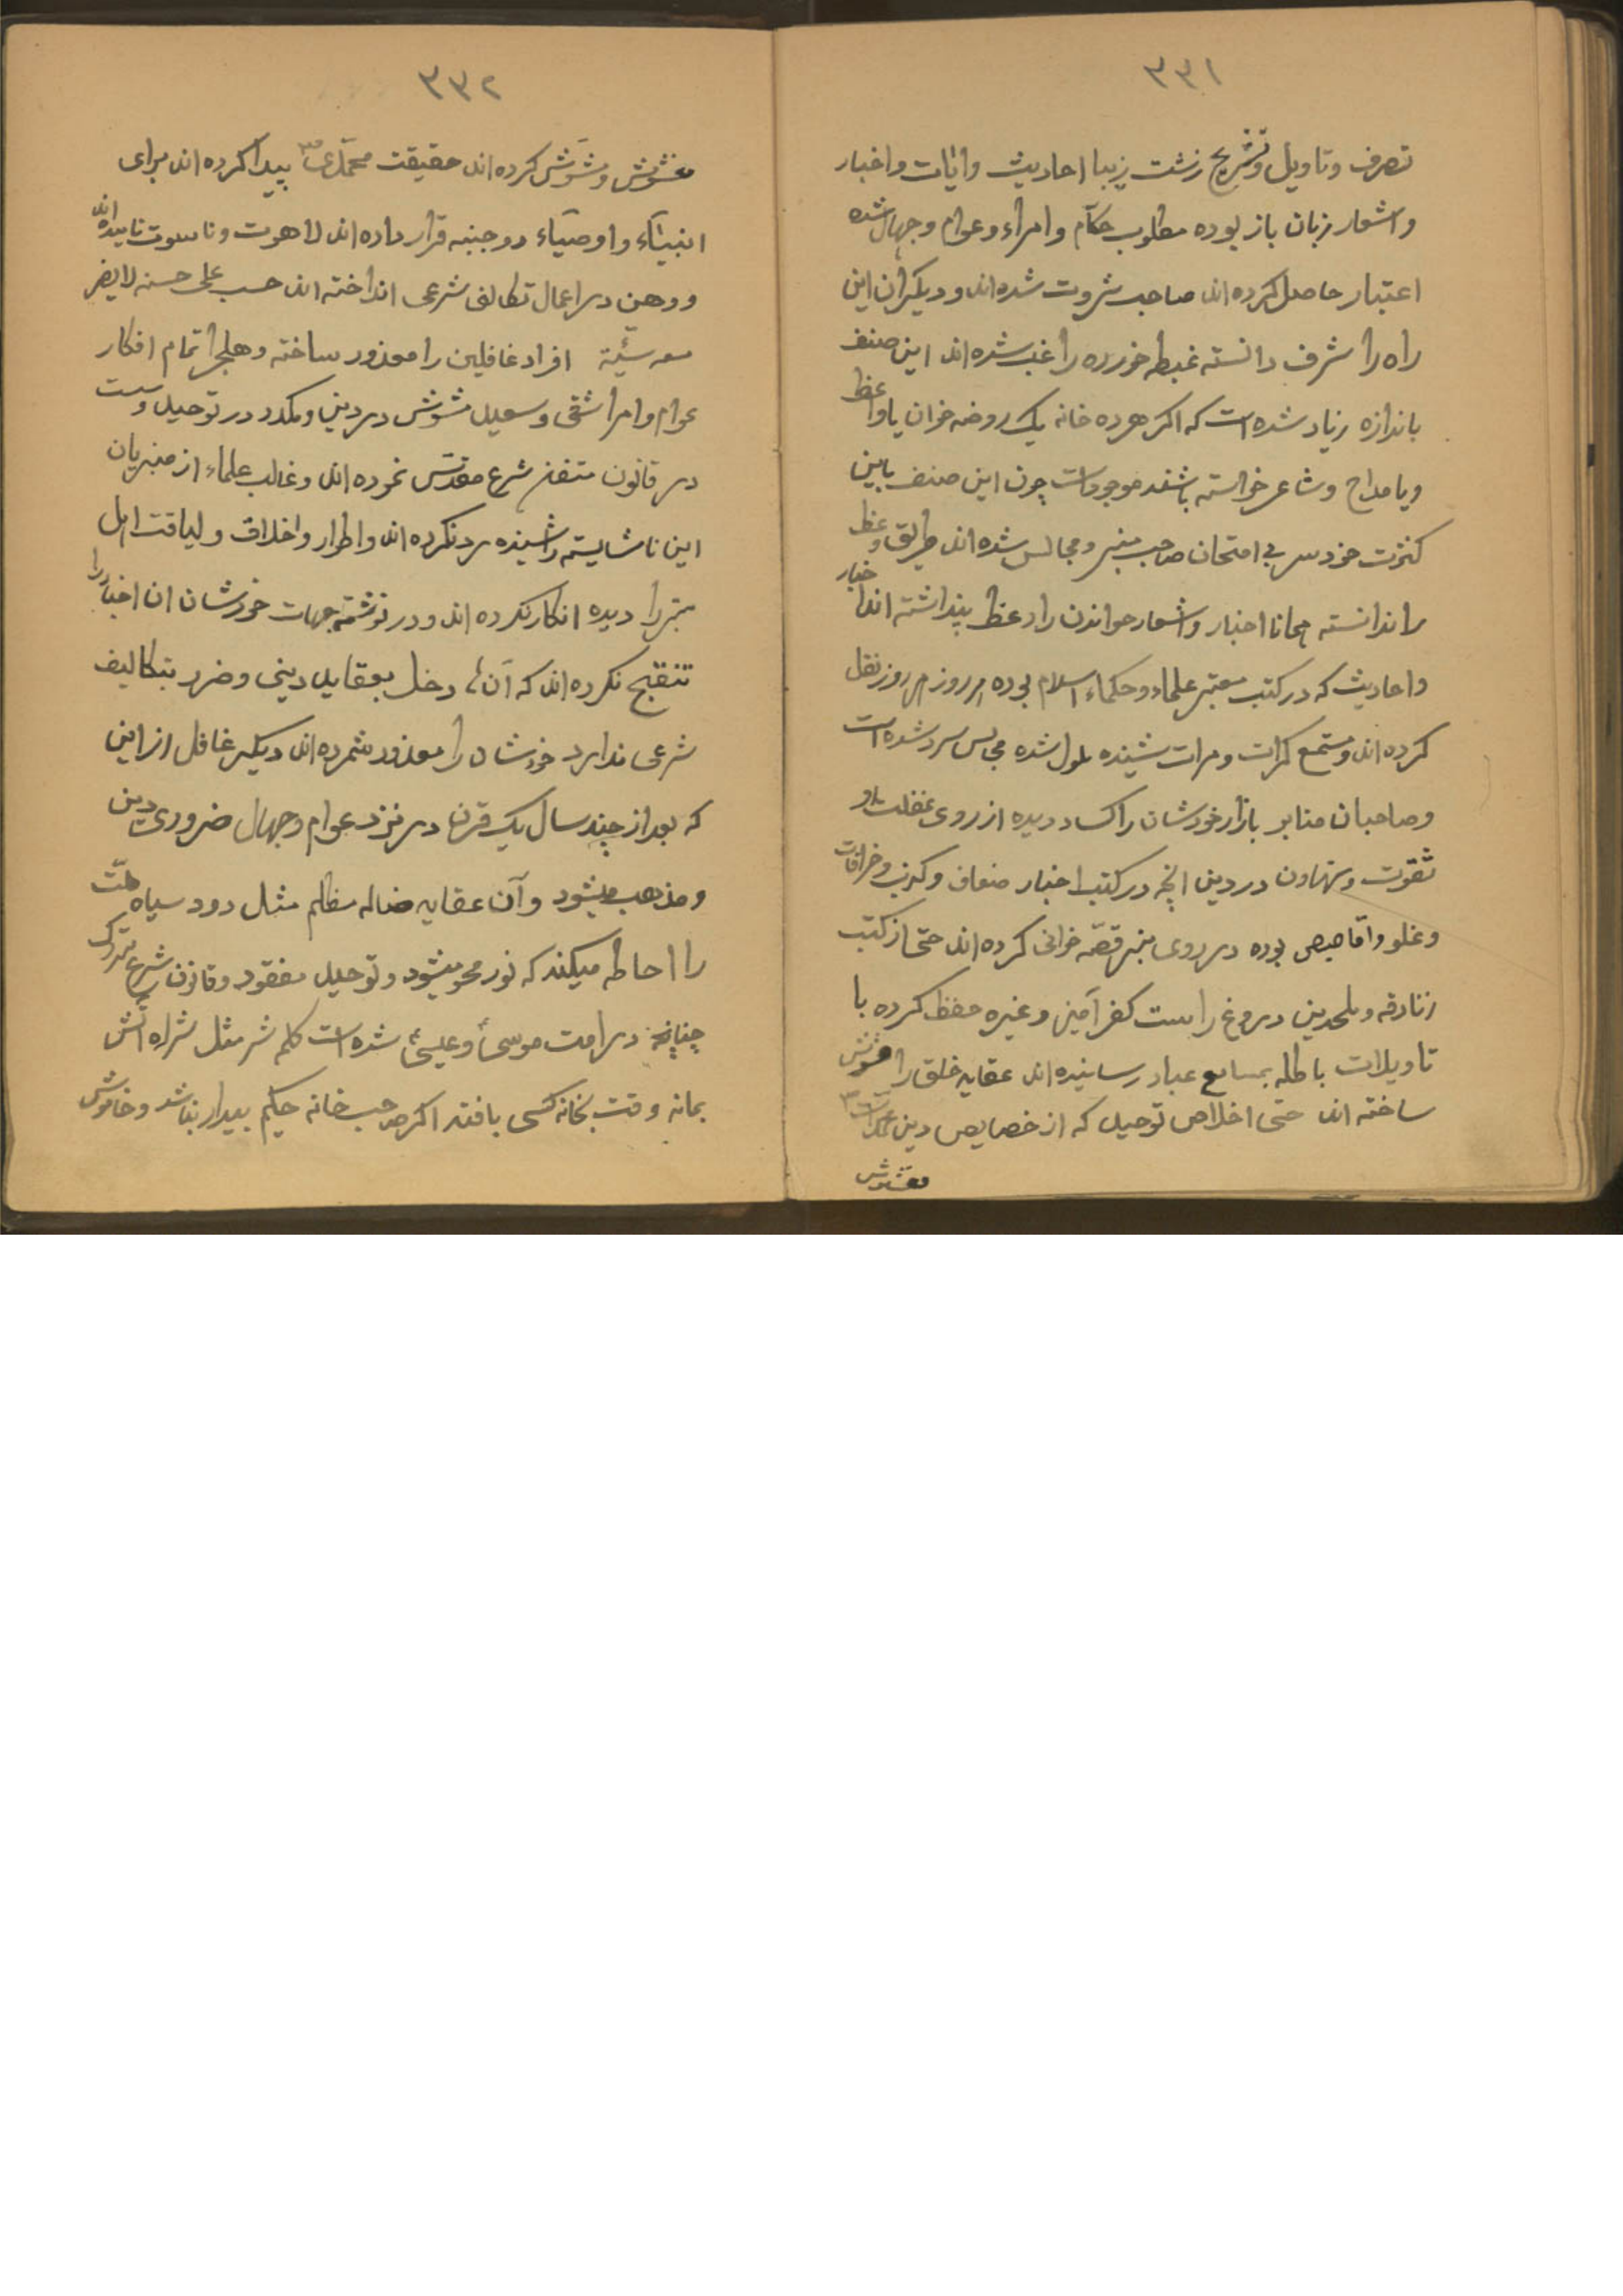 ۳۳۱
تصرف وتاویل وتشریح زشت زیبا احادیث وایات واخبار
واشعار زبان باز بوده مطلوب حکام وامراء وعوام وجهال شده
اعتبار حاصل کرده اند صاحب ثروت شده اند ودیگران این
راه را شرف دانسته غبطه خورده راغب شده اند این صنف
باندازه زیاد شده است که اکر هر ده خانه یک روضه خوان یا واعظ
ویا مداح وشاعر خواسته باشند موجود است چون این صنف باین
کثرت خودسر بی امتحان صاحب منبر ومجالس شده اند طریق وعظ
را ندانسته مجانا اخبار واشعار خواندن را وعظ پنداشته اند اخبار
واحادیث که در کتب معتبر علماء وحکماء اسلام بوده هر روز هر روز نقل
کرده اند ومستمع کرات ومرات شنیده ملول شده مجالس سرد شده است
وصاحبان منابر بازار خودشان را کساد دیده از روی غفلت و
تقوت وتهاون در دین انچه در کتب اخبار ضعاف وکذب وخرافات
وغلو واقاصیص بوده در روی منبر قصّه خوانی کرده اند حتی از کتب
زنادقه وملحدین دروغ راست کفر آمیز وغیره حفظ کرده با
تاویلات باطله بمسامع عباد رسانیده اند عقاید خلق را مغشوش
ساخته اند حتی اخلاص توحید که از خصایص دین محمد است
مغشوش
۳۳۲
مغشوش ومشوّش کرده اند حقیقت محمّدی ص پیدا کرده اند برای
انبیّاء واوصیّاء دو جنبه قرار داده اند لاهوت وناسوت نامیده اند
ووهن در اعمال تکالف شرعی انداخته اند حب علی حسنه لایضر
معه سیّئة افراد غافلین را معذور ساخته وهلجرا تمام افکار
عوام وامرا شقی وسعید مشوّش در دین ومکدر در توحید وسست
در قانون متقن شرع مقدّس نموده اند وغالب علماء از منبریان
این ناشایسته را شنیده رد نکرده اند واطوار واخلاق ولیاقت اهل
منبر را دیده انکار نکرده اند ودر نوشتجات خودشان ان اخبار را
تنقیح نکرده اند که آن ها دخل بعقاید دینی وضرر بتکالیف
شرعی ندارد خودشان را معذور شمرده اند دیگر غافل از این
که بعد از چند سال یک قرن در نزد عوام وجهال ضروری دین
ومذهب میشود وآن عقاید ضاله مظلم مثل دود سیاه ملّت
را احاطه میکند که نور محو میشود وتوحید مفقود وقانون شرع متروک
چنانچه در امت موسی وعیسی شده است کلم شر مثل شراره آتش
بمانه وقت بخانه کسی بافتد اکر صاحب خانه حکیم بیدار نباشد وخاموش